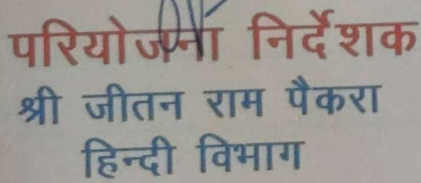 परियोजना निर्देशक
श्री जीतन राम पैकरा
हिन्दी विभाग